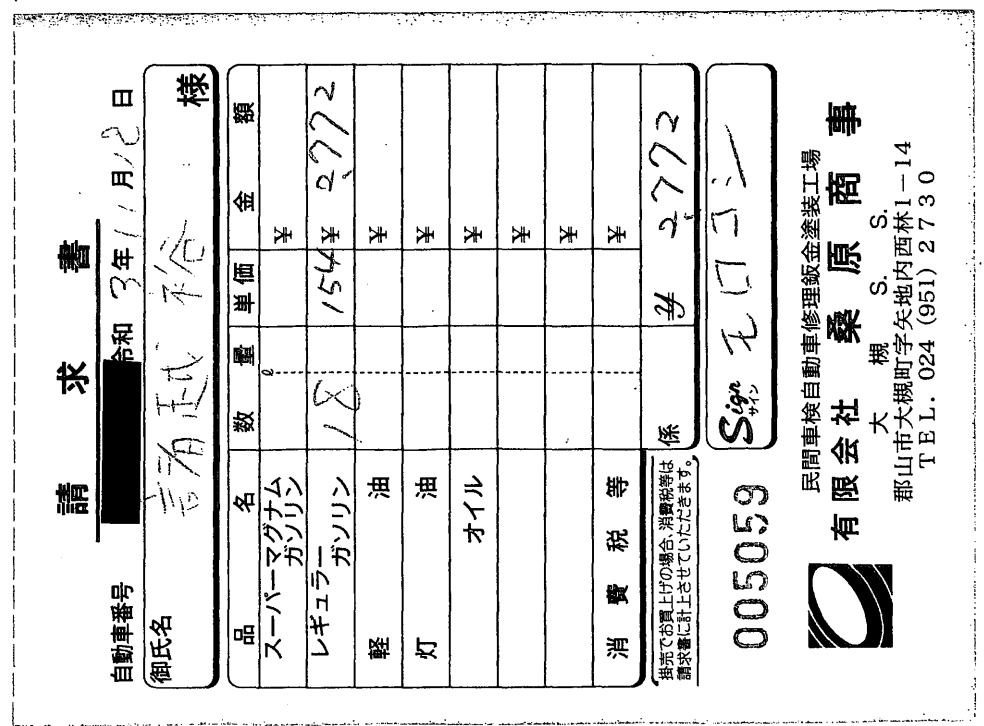 請求書
自動車番号 令和 3年11月12日
御氏名 様
品名 数量 単価 金額
スーパーマグナムガソリン ℓ ¥
レギュラーガソリン 18 154 ¥2,772
軽油 ¥
灯油 ¥
オイル ¥
¥
¥
消費税等 ¥
掛売でお買上げの場合、消費税等は
請求書に計上させていただきます。
係 ¥ 2,772
005059
Sign サイン
民間車検自動車修理鈑金塗装工場
有限会社 桑原商事
大槻 S. S.
郡山市大槻町字矢地内西林1-14
TEL. 024 (951) 2730